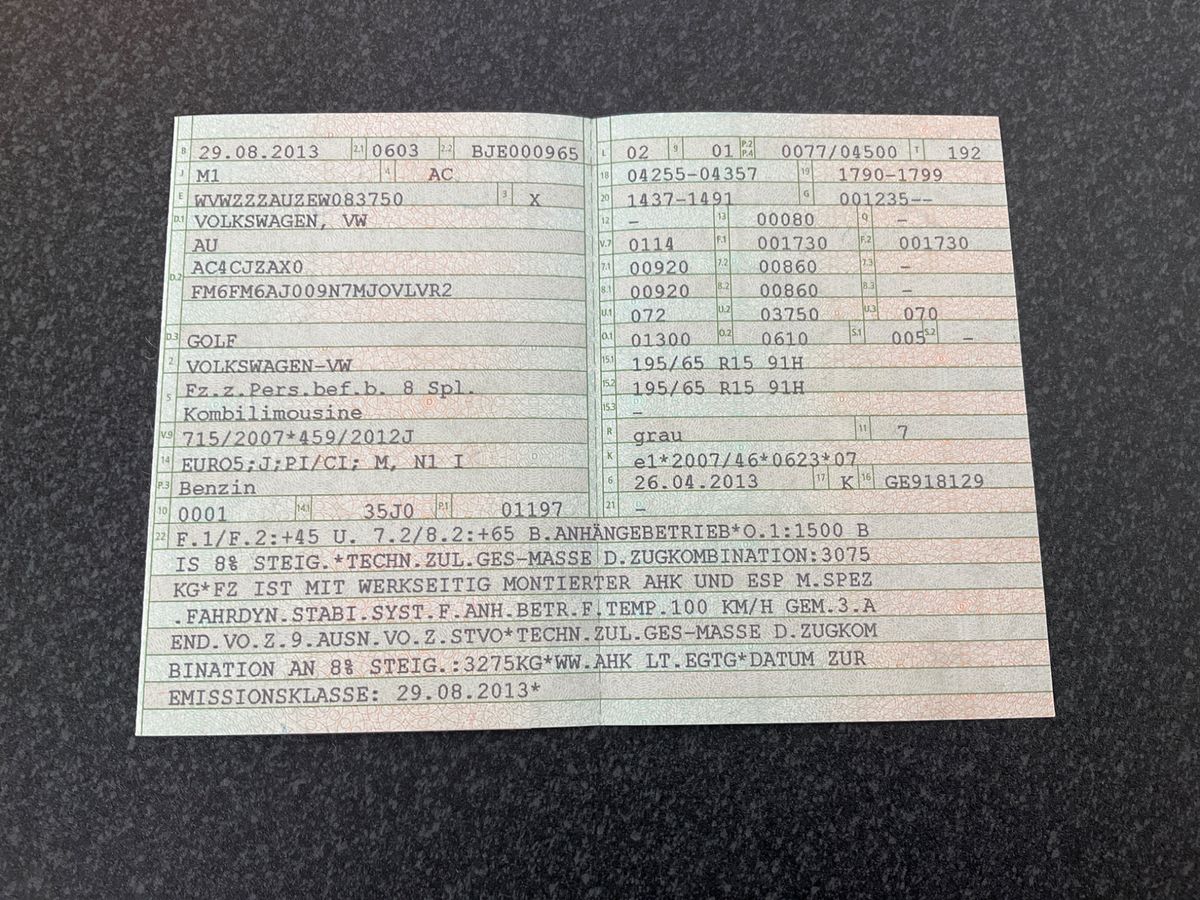 B 29.08.2013 2.1 0603 2.2 BJE000965
J M1 4 AC
E WVWZZZAUZEW083750 3 X
D.1 VOLKSWAGEN, VW
AU
D.2 AC4CJZAX0
FM6FM6AJ009N7MJOVLVR2
D.3 GOLF
2 VOLKSWAGEN-VW
5 Fz.z.Pers.bef.b. 8 Spl.
Kombilimousine
V.9 715/2007*459/2012J
14 EURO5;J;PI/CI; M, N1 I
P.3 Benzin
10 0001 14.1 35J0 P.1 01197
L 02 9 01 P.2 P.4 0077/04500 T 192
18 04255-04357 19 1790-1799
20 1437-1491 G 001235--
12 - 13 00080 Q -
V.7 0114 F.1 001730 F.2 001730
7.1 00920 7.2 00860 7.3 -
8.1 00920 8.2 00860 8.3 -
U.1 072 U.2 03750 U.3 070
O.1 01300 O.2 0610 S.1 005 S.2 -
15.1 195/65 R15 91H
15.2 195/65 R15 91H
15.3 -
R grau 11 7
K e1*2007/46*0623*07
6 26.04.2013 17 K 16 GE918129
21 -
22 F.1/F.2:+45 U. 7.2/8.2:+65 B.ANHÄNGEBETRIEB*O.1:1500 B
IS 8% STEIG.*TECHN.ZUL.GES-MASSE D.ZUGKOMBINATION:3075
KG*FZ IST MIT WERKSEITIG MONTIERTER AHK UND ESP M.SPEZ
.FAHRDYN.STABI.SYST.F.ANH.BETR.F.TEMP.100 KM/H GEM.3.A
END.VO.Z.9.AUSN.VO.Z.STVO*TECHN.ZUL.GES-MASSE D.ZUGKOM
BINATION AN 8% STEIG.:3275KG*WW.AHK LT.EGTG*DATUM ZUR
EMISSIONSKLASSE: 29.08.2013*